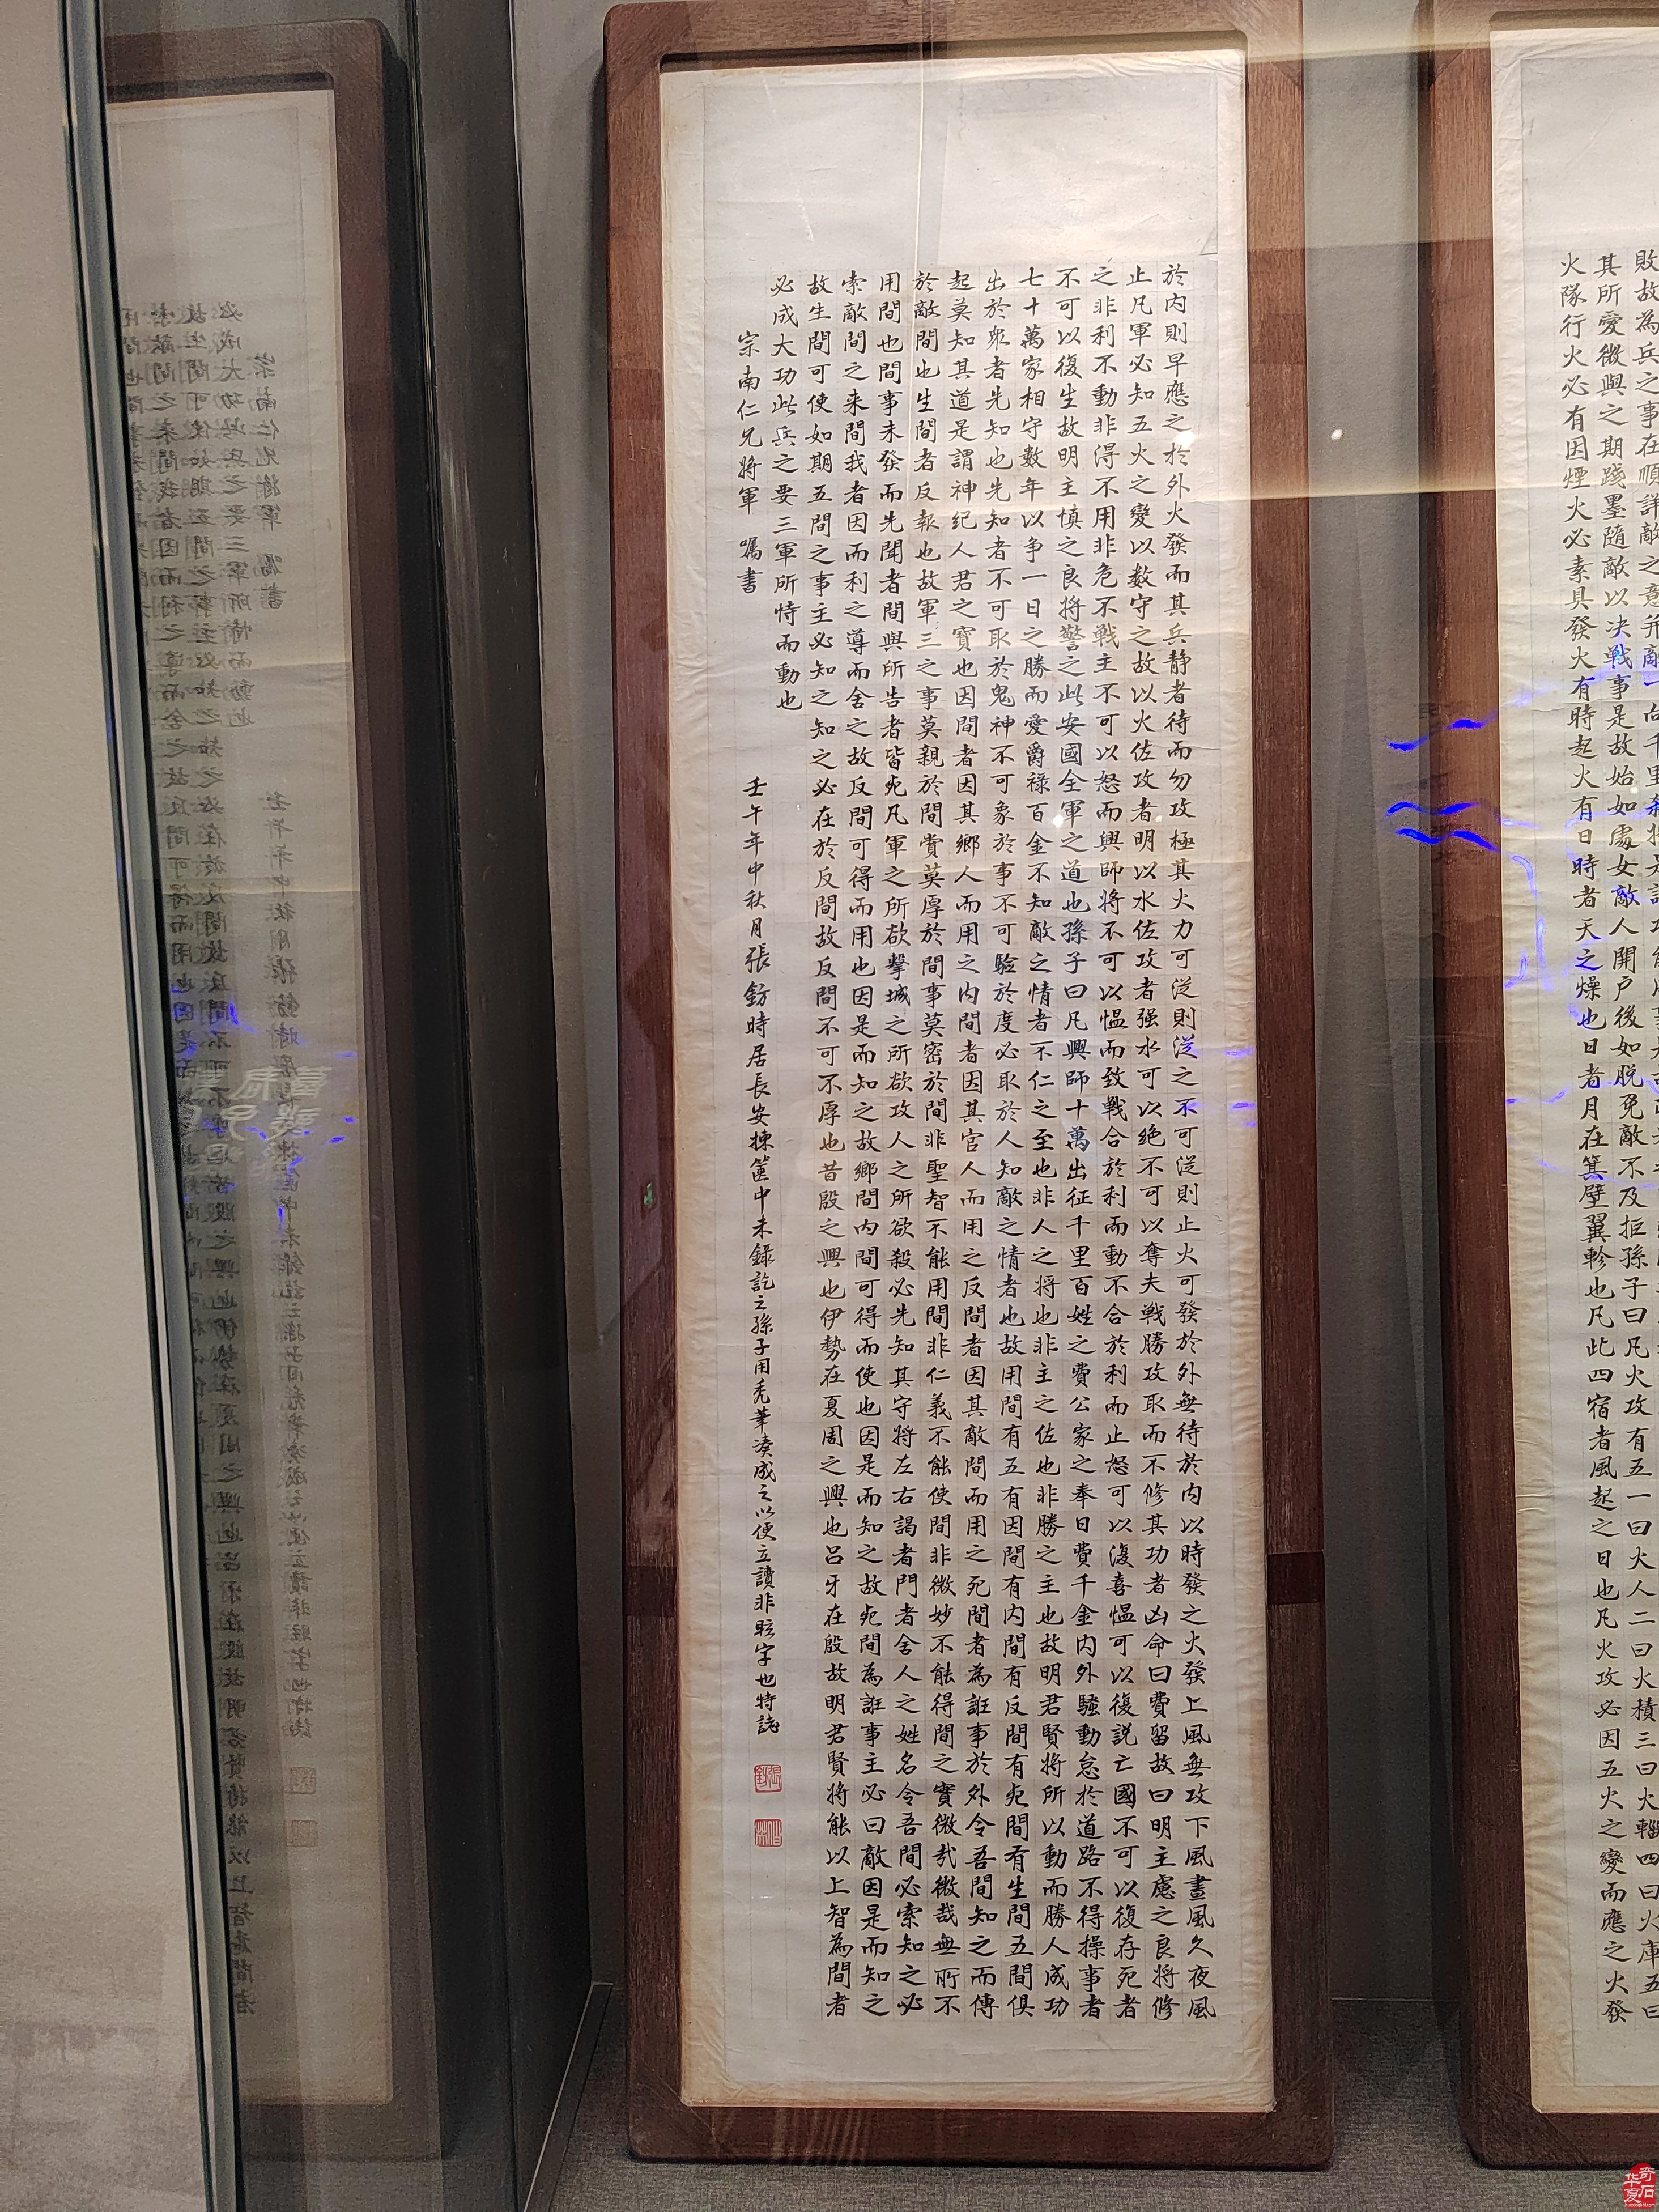 敗故為兵之事在順詳敵之意并敵一向千里
其所愛微與之期踐墨隨敵以决戰事是故始如處女敵人開户後如脱兔敵不及拒孫子曰凡火攻有五一曰火人二曰火積三曰火輜四曰火庫五曰
火隊行火必有因煙火必素具發火有時起火有日時者天之燥也日者月在箕壁翼軫也凡此四宿者風起之日也凡火攻必因五火之變而應之火發
於内則早應之於外火發而其兵静者待而勿攻極其火力可從則從之不可從則止火可發於外無待於内以時發之火發上風無攻下風晝風久夜風
止凡軍必知五火之變以数守之故以火佐攻者明以水佐攻者强水可以絶不可以奪夫戰勝攻取而不修其功者凶命曰費留故曰明主慮之良將修
之非利不動非得不用非危不戰主不可以怒而興師將不可以愠而致戰合於利而動不合於利而止怒可以復喜愠可以復説亡國不可以復存死者
不可以復生故明主慎之良将警之此安國全軍之道也孫子曰凡興師十萬出征千里百姓之費公家之奉日費千金内外騷動怠於道路不得操事者
七十萬家相守数年以争一日之勝而愛爵禄百金不知敵之情者不仁之至也非人之将也非主之佐也非勝之主也故明君賢将所以動而勝人成功
出於衆者先知也先知者不可取於鬼神不可象於事不可驗於度必取於人知敵之情者也故用間有五有因間有内間有反間有死間有生間五間俱
起莫知其道是謂神紀人君之寶也因間者因其鄉人而用之内間者因其官人而用之反間者因其敵間而用之死間者為誑事於外令吾間知之而傳
於敵間也生間者反報也故軍三之事莫親於間賞莫厚於間事莫密於間非聖智不能用間非仁義不能使間非微妙不能得間之實微哉微哉無所不
用間也間事未發而先聞者間與所告者皆死凡軍之所欲擊城之所欲攻人之所欲殺必先知其守將左右謁者門者舍人之姓名令吾間必索知之必
索敵間之来間我者因而利之導而舍之故反間可得而用也因是而知之故鄉間内間可得而使也因是而知之故死間為誑事主必曰敵因是而知之
故生間可使如期五間之事主必知之知之必在於反間故反間不可不厚也昔殷之興也伊勢在夏周之興也呂牙在殷故明君賢將能以上智為間者
必成大功此兵之要三軍所恃而動也
宗南仁兄將軍 囑書
壬午年中秋月張鈁時居長安揀篋中未錄訖之孫子用禿筆湊成之以便立讀非眩字也特誌
張鈁
伯英
华夏奇石